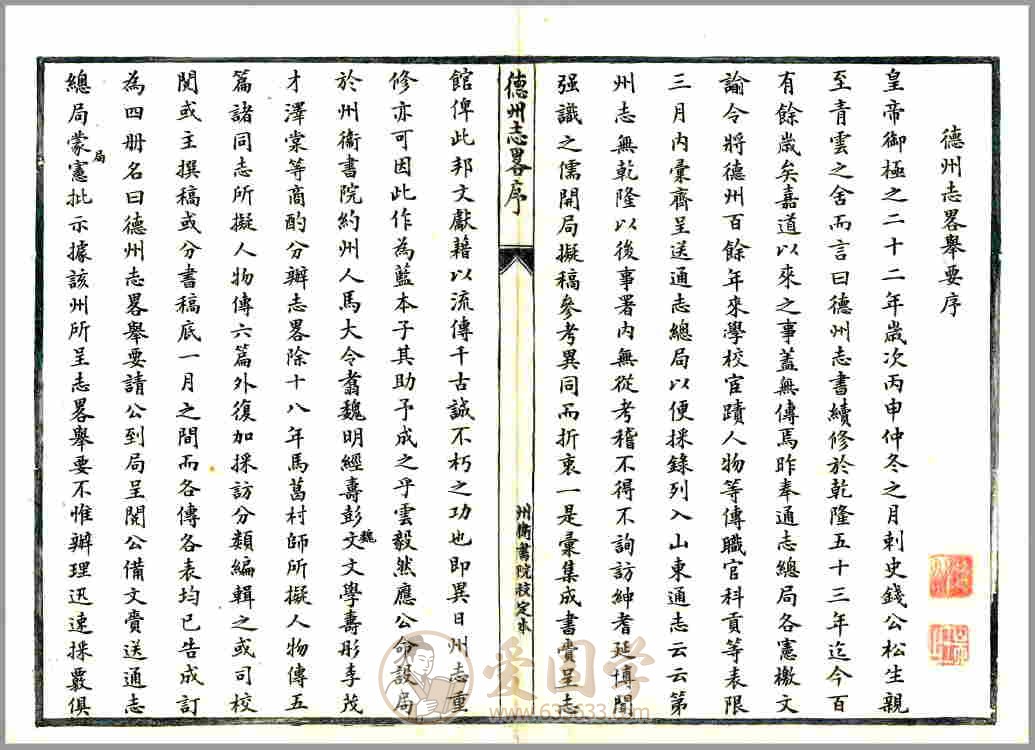 德州志畧舉要序
皇帝御極之二十二年歲次丙申仲冬之月刺史錢公松生親
至青雲之舍而言曰德州志書續修於乾隆五十三年迄今百
有餘歲矣嘉道以來之事蓋無傳焉昨奉通志總局各憲檄文
諭令將德州百餘年來學校宦蹟人物等傳職官科貢等表限
三月內彙齊呈送通志總局以便採錄列入山東通志云云第
州志無乾隆以後事署內無從考稽不得不詢訪紳耆延博聞
强識之儒開局擬稿參考異同而折衷一是彙集成書賫呈志
德州志畧序
州衛書院校定本
館俾此邦文獻藉以流傳千古誠不朽之功也即異日州志重
修亦可因此作為藍本子其助予成之乎雲毅然應公命設局
於州衛書院約州人馬大令翥魏明經壽彭魏文學壽彤李茂
才澤棠等商酌分辦志畧除十八年馬葛村師所擬人物傳五
篇諸同志所擬人物傳六篇外復加採訪分類編輯之或司校
閱或主撰稿或分書稿底一月之間而各傳各表均已告成訂
為四册名曰德州志畧舉要請公到局呈閱公備文賫送通志
總局蒙局憲批示據該州所呈志畧舉要不惟辦理迅速採覈俱
爱国学
www.635633.com